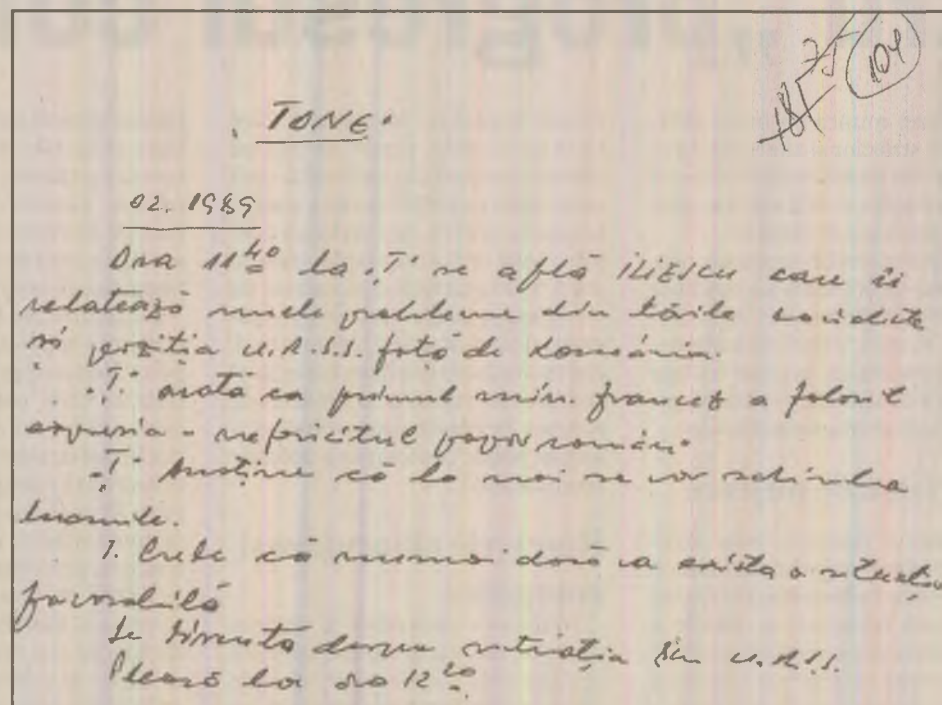 181 75 104
"TONE"
02. 1989
Ora 11 40 la "T" se află ILIESCU care îi
relatează unele probleme din țările socialiste
și poziția U.R.S.S. față de România.
"T" arată ca primul min. francez a folosit
expresia - nefericitul popor român"
"T" susține că la noi se vor schimba
lucrurile.
I. Crede că numai dacă va exista o situație
favorabilă
Se discută despre situația din U.R.S.S.
Pleacă la ora 12 20